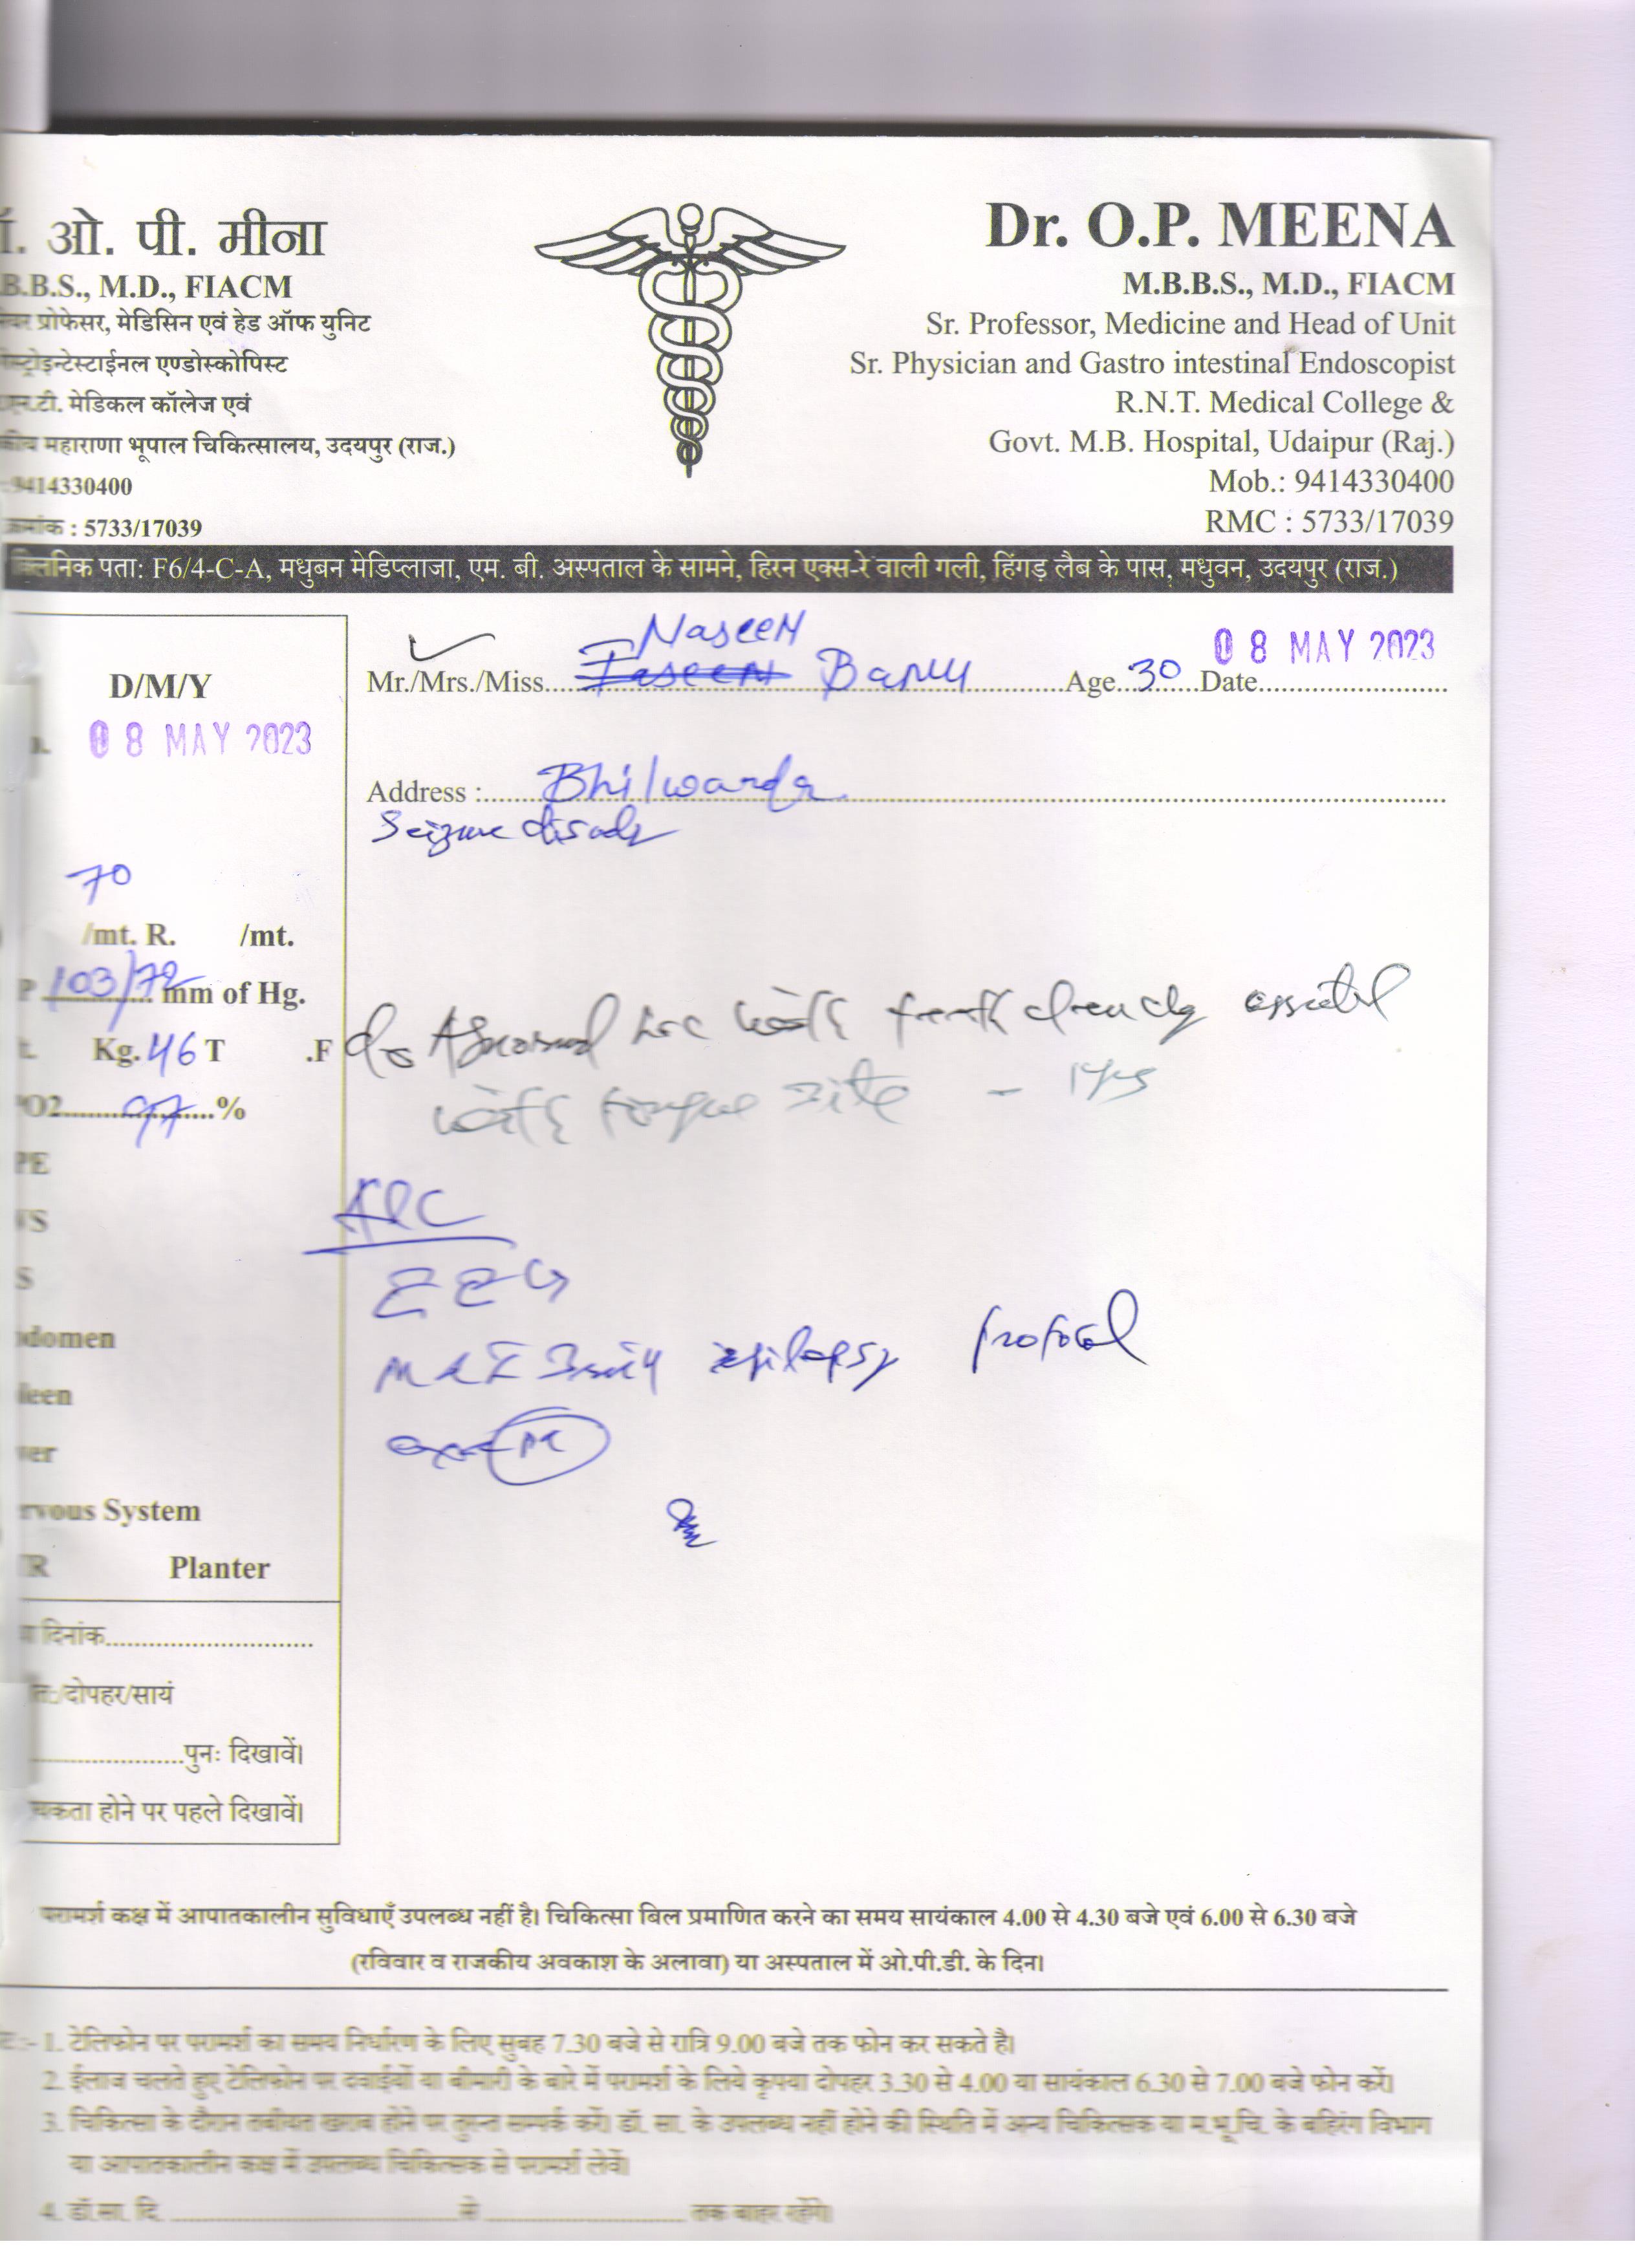 . ओ. पी. मीना
B.B.S., M.D., FIACM
प्रोफेसर, मेडिसिन एवं हेड ऑफ युनिट
स्ट्रोइन्टेस्टाईनल एण्डोस्कोपिस्ट
.टी. मेडिकल कॉलेज एवं
महाराणा भूपाल चिकित्सालय, उदयपुर (राज.)
9414330400
क्रमांक : 5733/17039
Dr. O.P. MEENA
M.B.B.S., M.D., FIACM
Sr. Professor, Medicine and Head of Unit
Sr. Physician and Gastro intestinal Endoscopist
R.N.T. Medical College &
Govt. M.B. Hospital, Udaipur (Raj.)
Mob.: 9414330400
RMC : 5733/17039
क्लिनिक पता: F6/4-C-A, मधुबन मेडिप्लाजा, एम. बी. अस्पताल के सामने, हिरन एक्स-रे वाली गली, हिंगड़ लैब के पास, मधुवन, उदयपुर (राज.)
Naseem
Mr./Mrs./Miss Banu Age 30 Date 08 MAY 2023
Address : Bhilwarda
D/M/Y
08 MAY 2023
70
/mt. R. /mt.
P 103/72 mm of Hg.
Kg. 46 T .F
PO2 97 %
PE
VS
S
domen
leen
ver
rvous System
R Planter
दिनांक
/दोपहर/सायं
पुनः दिखावें।
यकता होने पर पहले दिखावें।
Seizure
with
with tongue bite
EEG
MRI epilepsy protocol
परामर्श कक्ष में आपातकालीन सुविधाएँ उपलब्ध नहीं है। चिकित्सा बिल प्रमाणित करने का समय सायंकाल 4.00 से 4.30 बजे एवं 6.00 से 6.30 बजे
(रविवार व राजकीय अवकाश के अलावा) या अस्पताल में ओ.पी.डी. के दिन।
1. टेलिफोन पर परामर्श का समय निर्धारण के लिए सुबह 7.30 बजे से रात्रि 9.00 बजे तक फोन कर सकते है।
2. ईलाज चलते हुए टेलिफोन पर दवाईयों या बीमारी के बारे में परामर्श के लिये कृपया दोपहर 3.30 से 4.00 या सायंकाल 6.30 से 7.00 बजे फोन करें।
3. चिकित्सा के दौरान तबीयत खराब होने पर तुरन्त सम्पर्क करें। डॉ. सा. के उपलब्ध नहीं होने की स्थिति में अन्य चिकित्सक या म.भू.चि. के बहिरंग विभाग
या आपातकालीन कक्ष में उपलब्ध चिकित्सक से परामर्श लेवें।
4. डॉ.सा. दि. से तक बाहर रहेंगे।